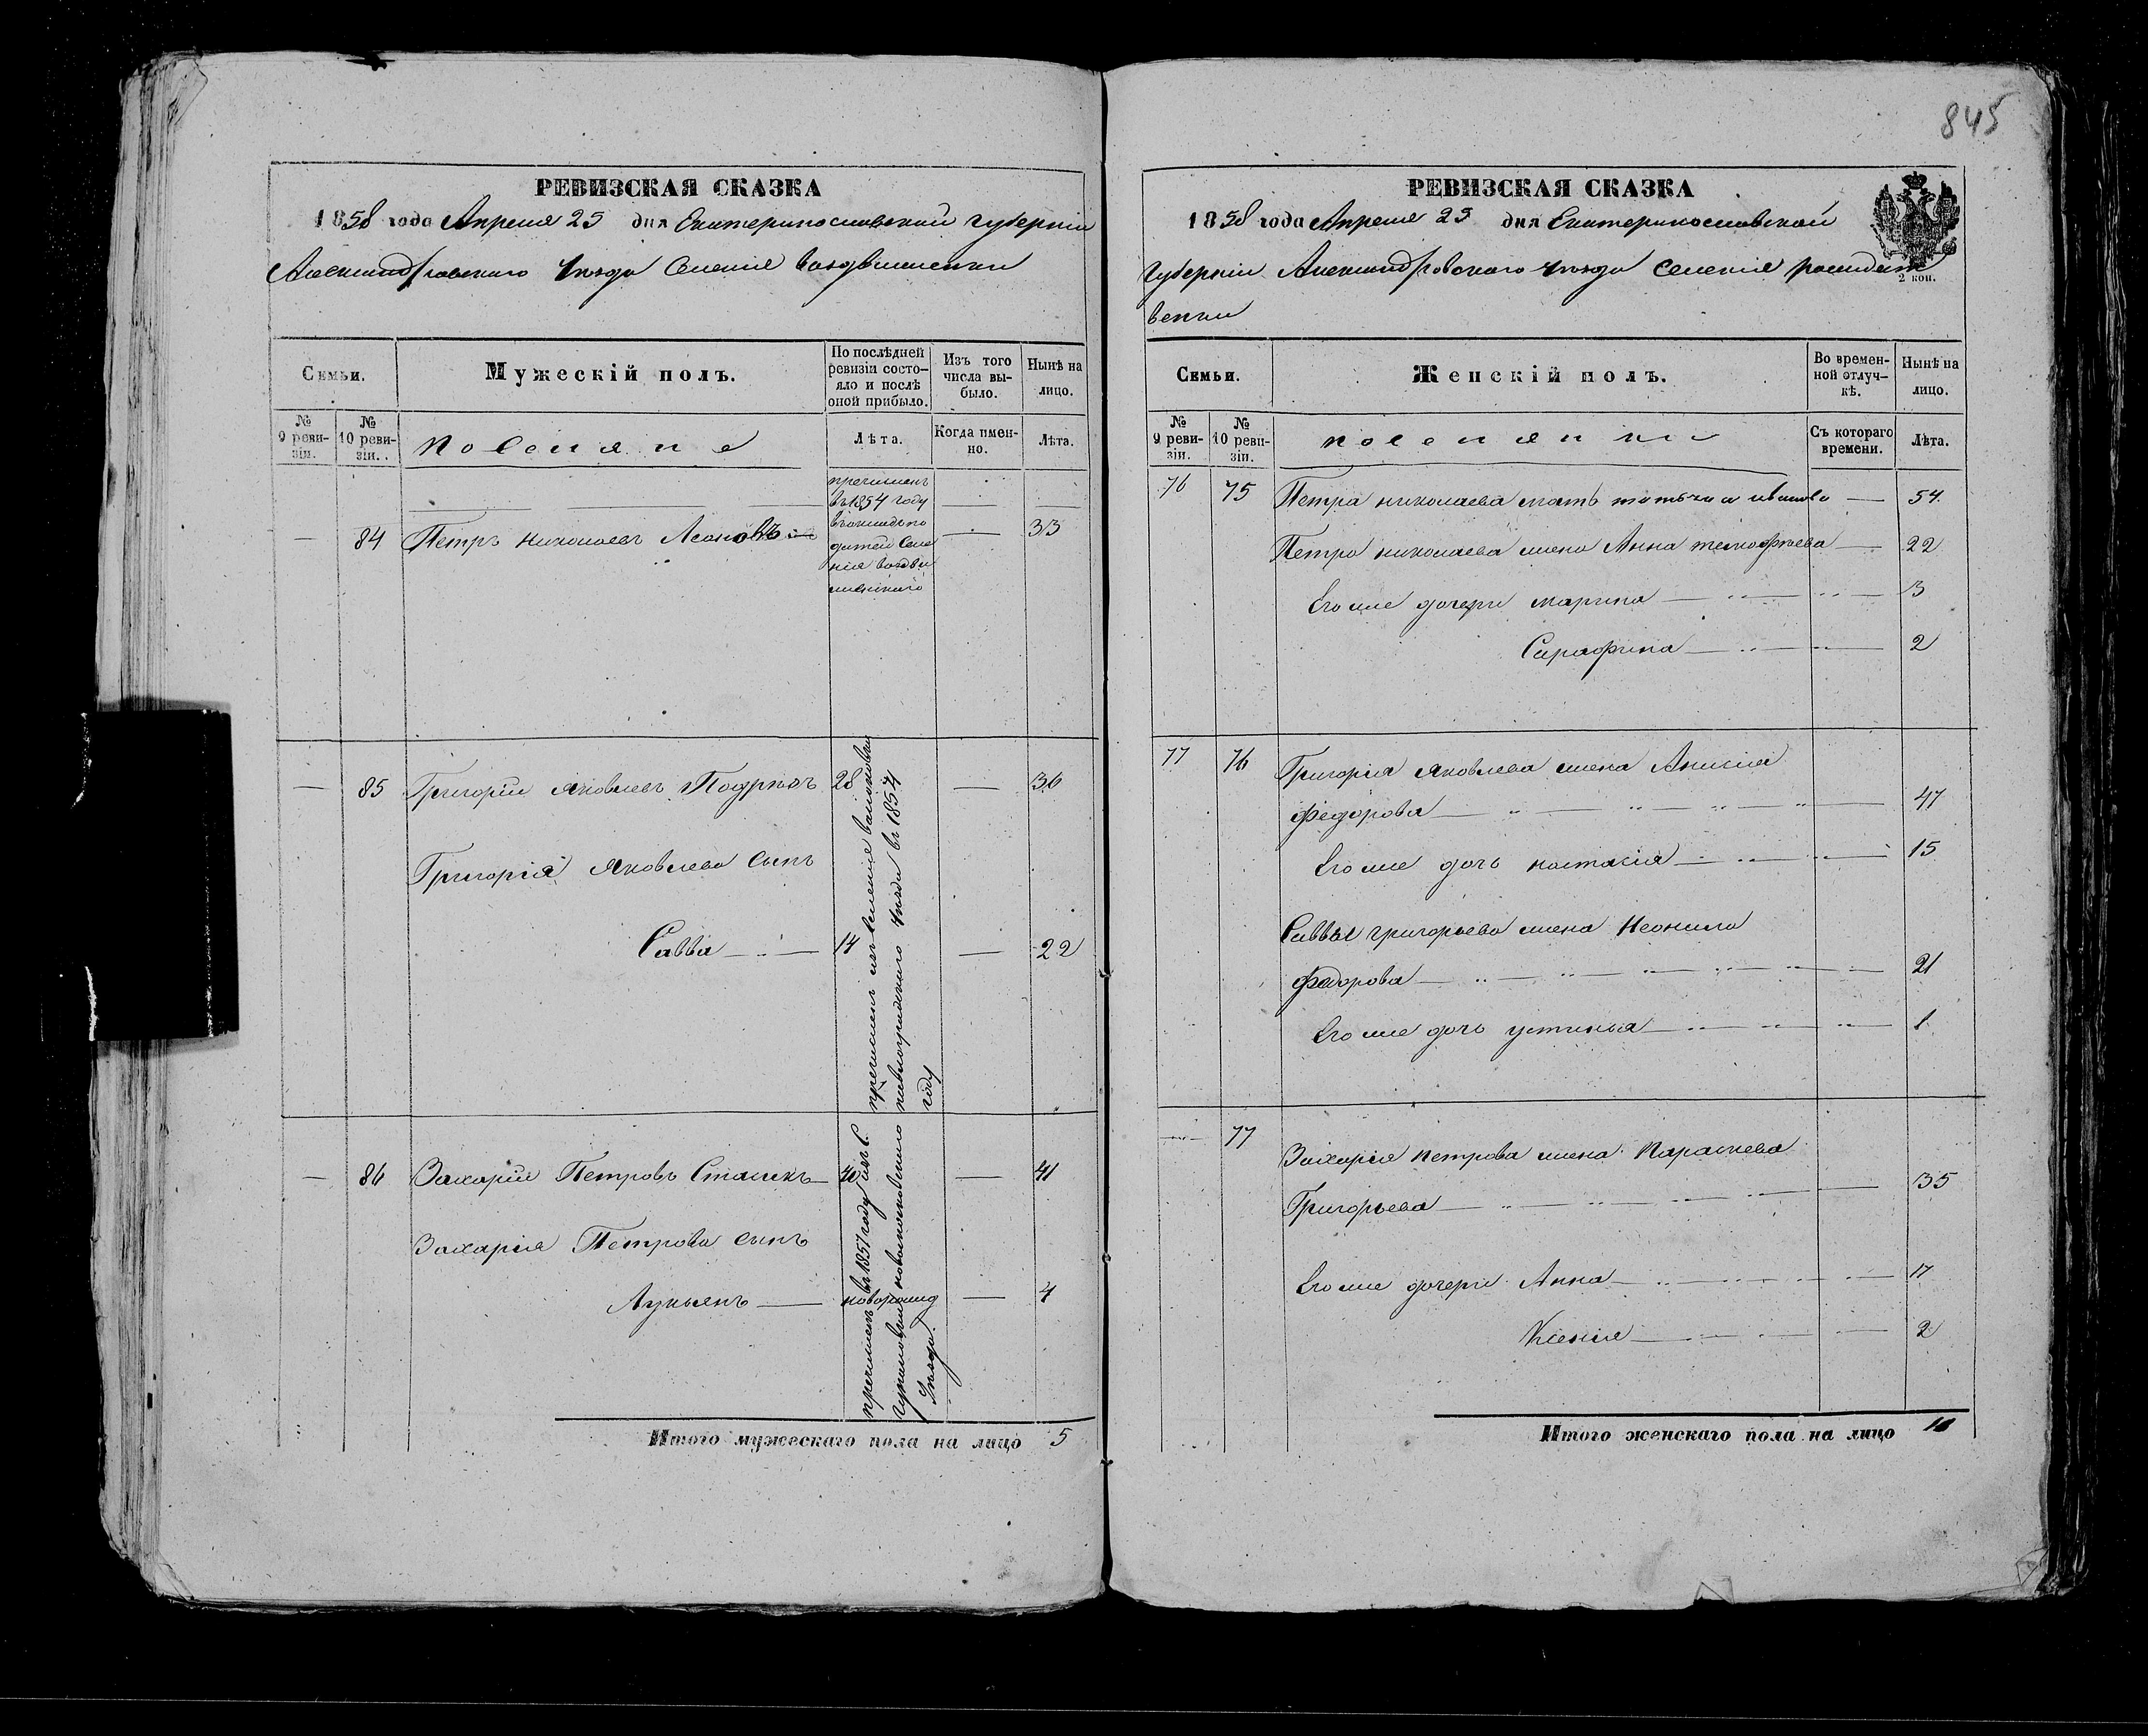 845
РЕВИЗСКАЯ СКАЗКА
1858 года Апреля 25 дня Екатеринославской губерніи
Александровского Уезда Селенія воздвиженки
Семьи.
Мужескій полъ.
По послѣдней ревизіи состо-
яло и послѣ
оной прибыло.
Изъ того
числа вы-
было.
Нынѣ на
лицо.
№
9 реви-
зіи.
№
10 реви-
зіи.
Поселяне
Лѣта.
Когда имен-
но.
Лѣта.
причислен
въ 1854 году
— 84 Петръ николаевъ — 33
— 85 Григорій яковлевъ 28 — 36
Григорія Яковлева Сынъ
Савва — 14 — 22
причислен изъ селенія
уезда въ 1854
году
— 86 Захарій Петровъ 40 — 41
Захарія Петрова сынъ
Лукьянъ — новорожд — 4
причислен въ 1857 году изъ С.
Уезда.
Итого мужескаго пола на лицо 5
РЕВИЗСКАЯ СКАЗКА
1858 года Апреля 25 дня Екатеринославской
Губерніи Александровского уезда Селенія
венки
2 коп.
Семьи.
Женскій полъ.
Во времен-
ной отлуч-
кѣ.
Нынѣ на
лицо.
№
9 реви-
зіи.
№
10 реви-
зіи.
поселянки
Съ котораго
времени.
Лѣта.
76 75 Петра николаева мать иванова — 54
Петра николаева жена Анна тимофеева — 22
Его же дочери марина — 3
Сарафина — 2
77 76 Григорія яковлева жена Анисія
федорова — 47
Его же дочь настасія — 15
Саввы григорьева жена Неонила
федорова — 21
Его же дочь устинья — 1
— 77 Захарія петрова жена Параскева
Григорьева — 35
Его же дочери Анна — 17
Ксенія — 2
Итого женскаго пола на лицо